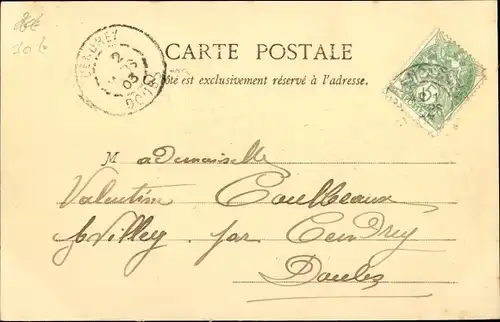 CENDREY
2
03
DOUBS
CARTE POSTALE
côté est exclusivement réservé à l'adresse.
5
Mademoiselle
Valentine Coulbeaux
Villey par Cendrey
Doubs